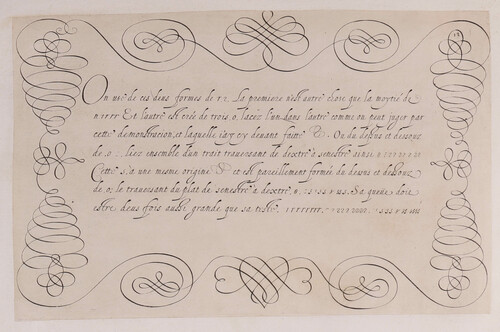 On use de ces deus formes de r 2. La premiere n'est autre chose que la moytié de
n r r r r Et l'autre est crée de trois .o. lacez l'un dans l'autre comme on peut juger par
cette demonstration, et laquelle i'ay cy devant faitte Ou du dessus et dessoux
de .o. liez ensemble d'un trait traversant de dextre a senestre ainsi.
Cette s. a une mesme origine et est pareillement formée du dessus et dessoux
de, o, le traversant du plat de senestre a dextre, Sa queue doit
estre deux fois aussi grande que sa teste. r r r r r r r r,